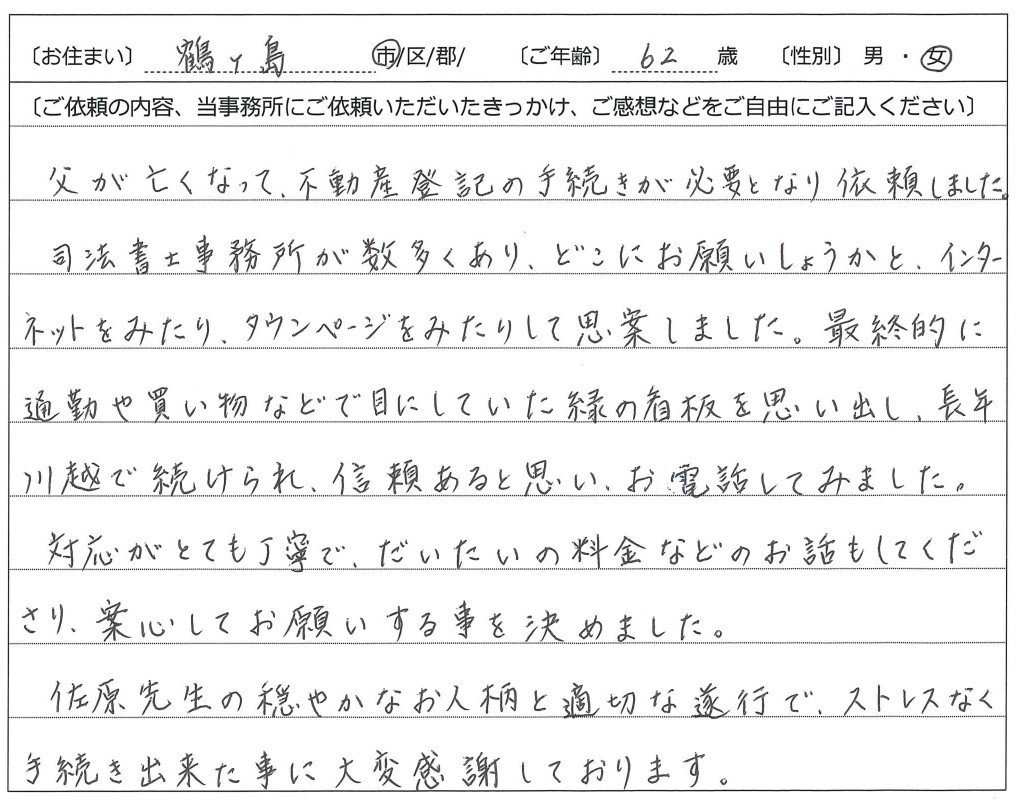 〔お住まい〕 鶴ヶ島 市/区/郡/ 〔ご年齢〕 62 歳 〔性別〕 男 ・ 女
〔ご依頼の内容、当事務所にご依頼いただいたきっかけ、ご感想などをご自由にご記入ください〕
父が亡くなって、不動産登記の手続きが必要となり依頼しました。
司法書士事務所が数多くあり、どこにお願いしようかと、インター
ネットをみたり、タウンページをみたりして思案しました。最終的に
通勤や買い物などで目にしていた緑の看板を思い出し、長年
川越で続けられ、信頼あると思い、お電話してみました。
対応がとても丁寧で、だいたいの料金などのお話もしてくだ
さり、案心してお願いする事を決めました。
佐原先生の穏やかなお人柄と適切な遂行で、ストレスなく
手続き出来た事に大変感謝しております。